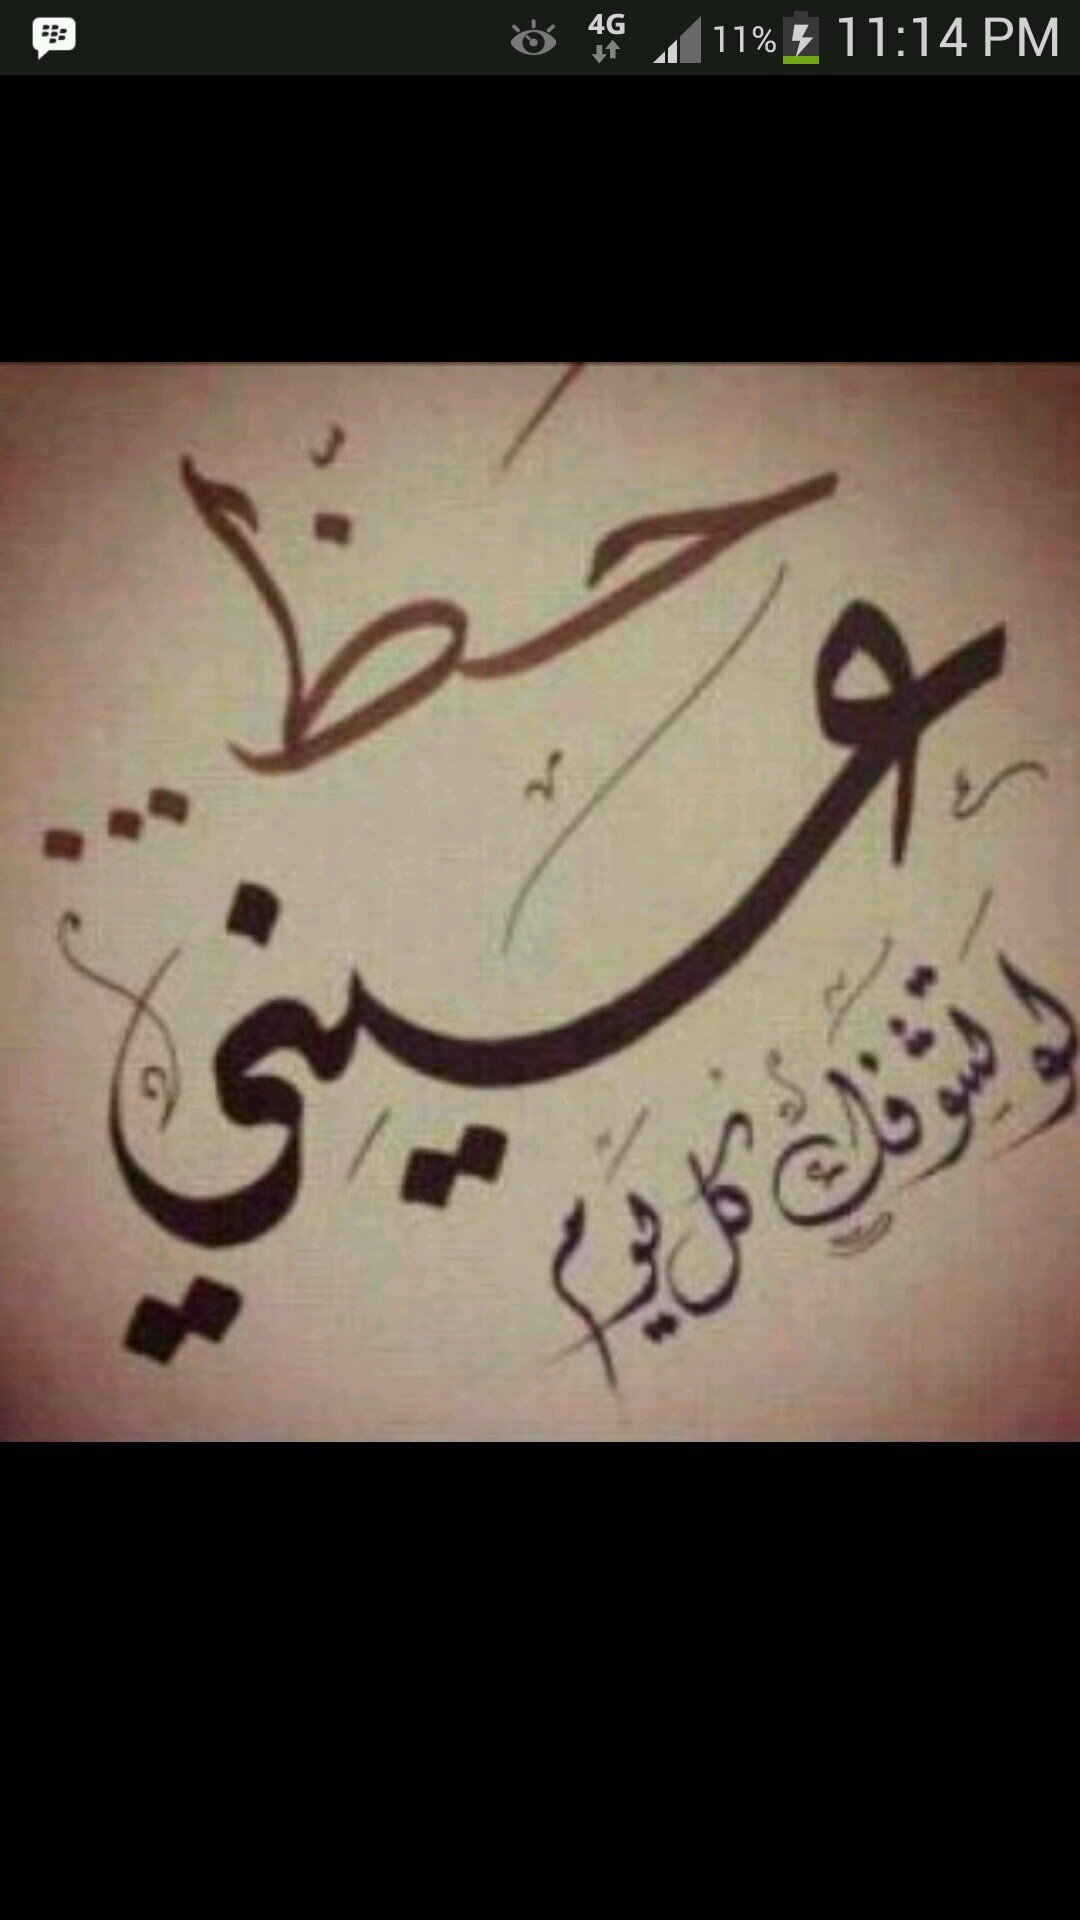 4G 11% 11:14 PM
حظّ
عيني
لو تشوفك كل يوم